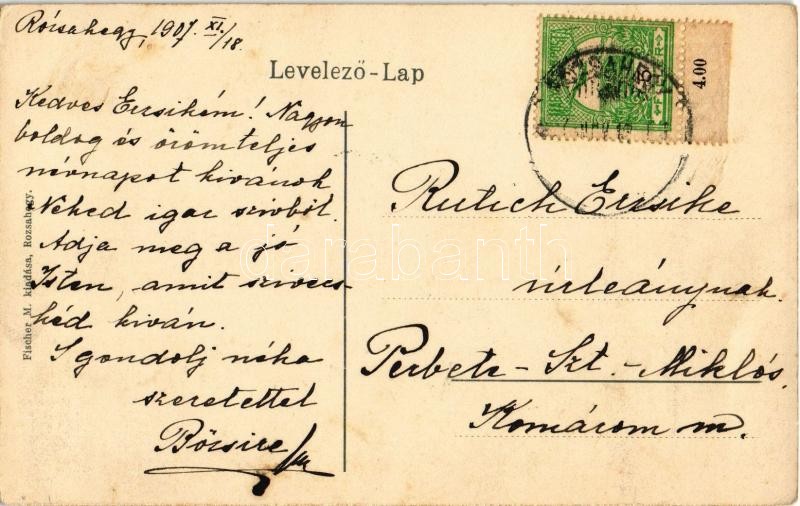 Rózsahegy, 1907. XI/18.
Levelező-Lap
4.00
Kedves Erzsikém! Nagyon
boldog és örömteljes
névnapot kivánok
Neked igaz szivből.
Adja meg a jó
Isten, amit szivecs-
kéd kiván.
S gondolj néha
szeretettel
Rutich Erzsike
úrleánynak
Perbete-Szt.-Miklós.
Komárom m.
Fischer M. kiadása, Rózsahegy.
darabanth